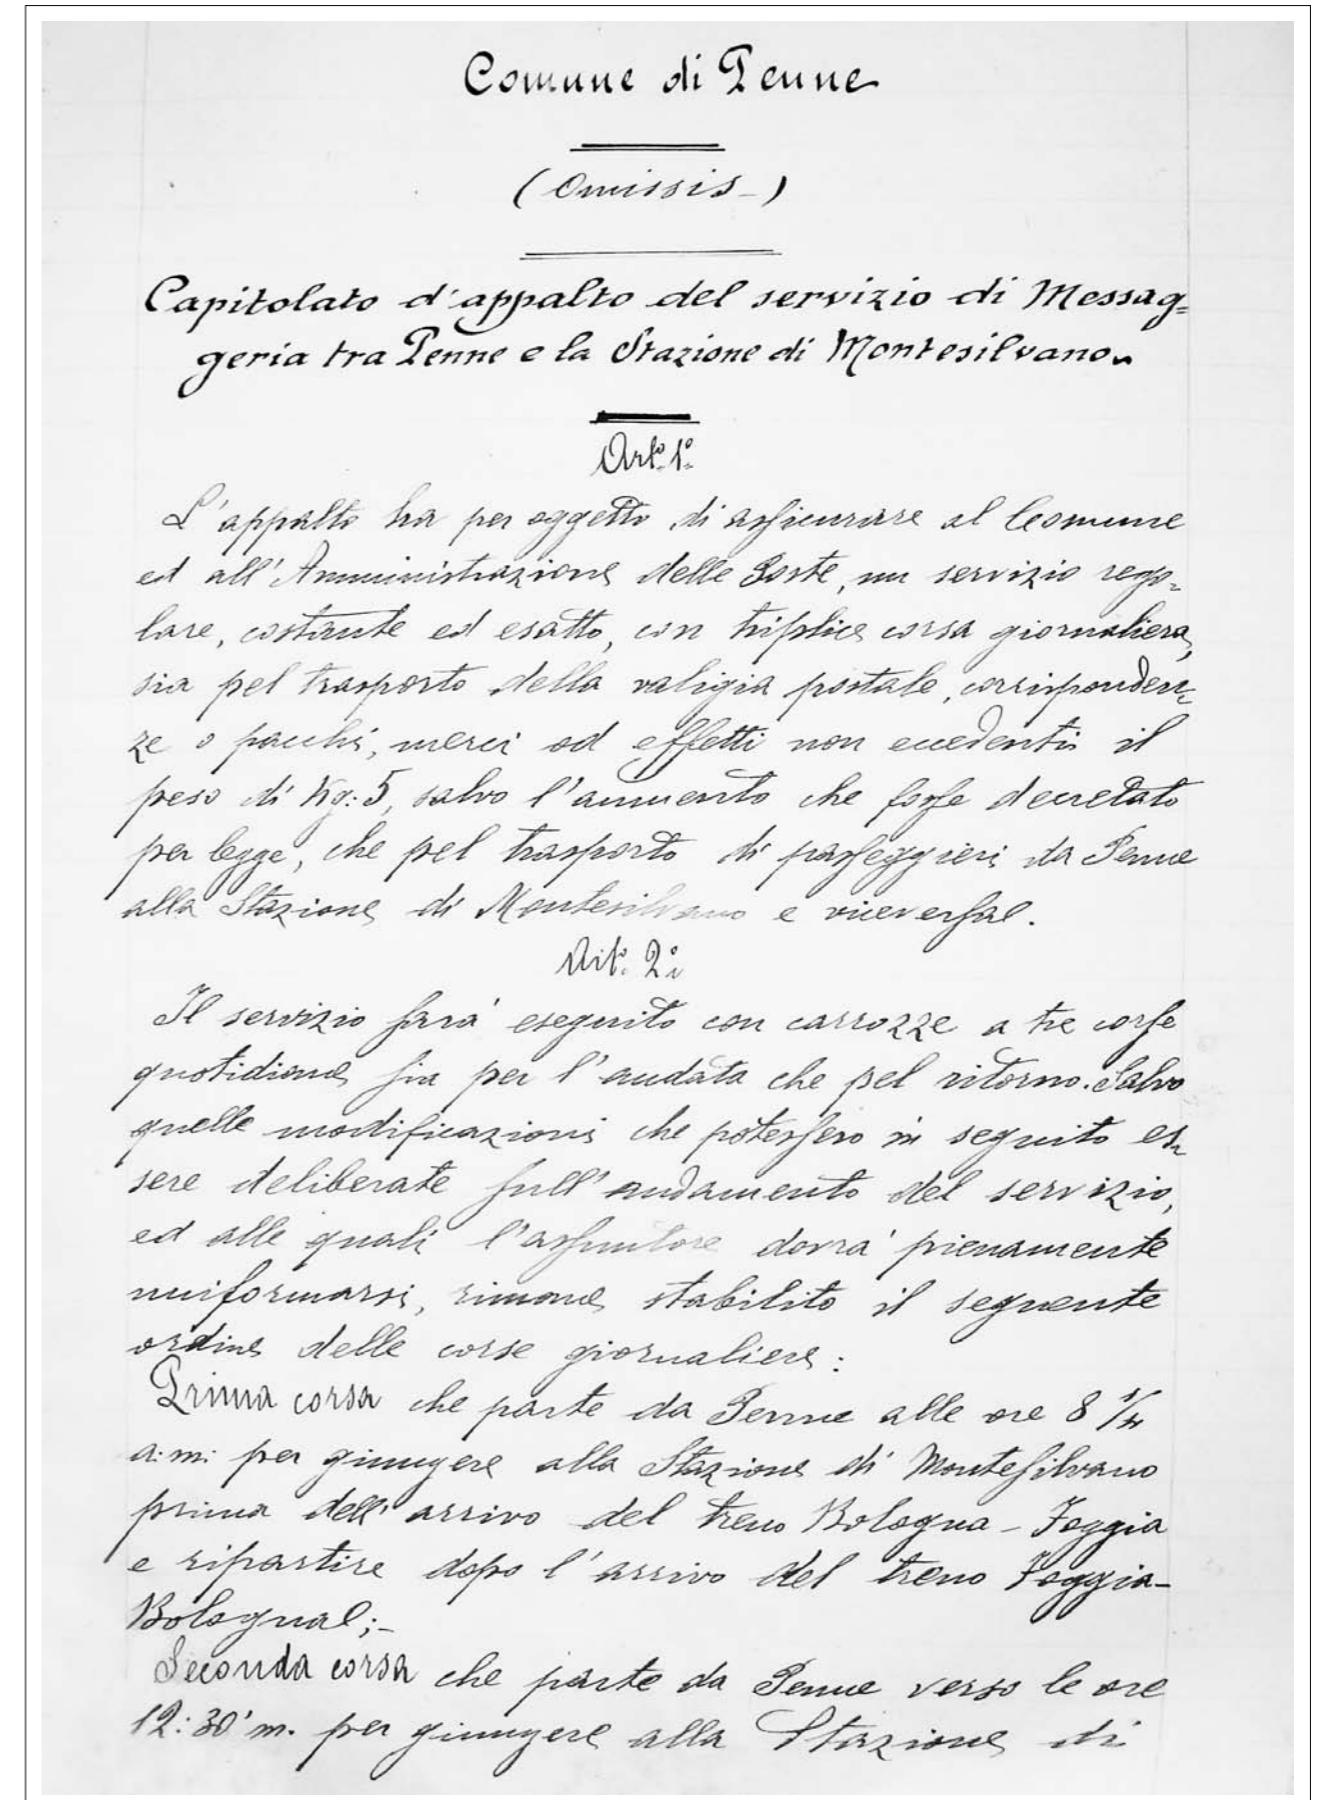 Comune di Penne
(Omissis-)
Capitolato d'appalto del servizio di Messag=
geria tra Penne e la Stazione di Montesilvano.
Art.º 1º
L'appalto ha per oggetto di assicurare al Comune
ed all'Amministrazione delle Poste, un servizio rego=
lare, costante ed esatto, con triplice corsa giornaliera,
sia pel trasporto della valigia postale, corrisponden=
ze o pacchi, merci od effetti non eccedenti il
peso di Kg: 5, salvo l'aumento che fosse decretato
per legge, che pel trasporto di passeggieri da Penne
alla Stazione di Montesilvano e viceversa.
Art.º 2º
Il servizio sarà eseguito con carrozze a tre corse
quotidiane sia per l'andata che pel ritorno. Salvo
quelle modificazioni che potessero in seguito es=
sere deliberate sull'andamento del servizio,
ed alle quali l'assuntore dovrà pienamente
uniformarsi, rimane stabilito il seguente
ordine delle corse giornaliere:
Prima corsa che parte da Penne alle ore 8 1/4
a:m: per giungere alla Stazione di Montesilvano
prima dell'arrivo del treno Bologna - Foggia
e ripartire dopo l'arrivo del treno Foggia-
Bologna;-
Seconda corsa che parte da Penne verso le ore
12:30' m. per giungere alla Stazione di